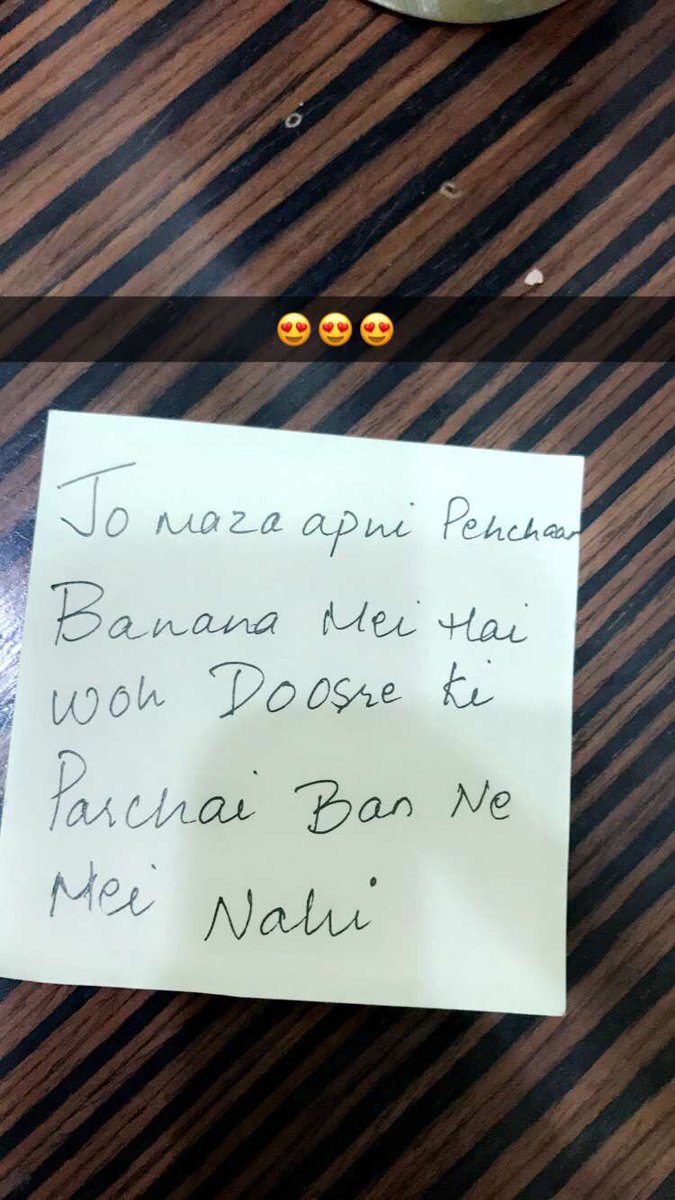 😍😍😍
Jo maza apni Pehchaan
Banana Mei Hai
woh Doosre ki
Parchai Ban Ne
Mei Nahi